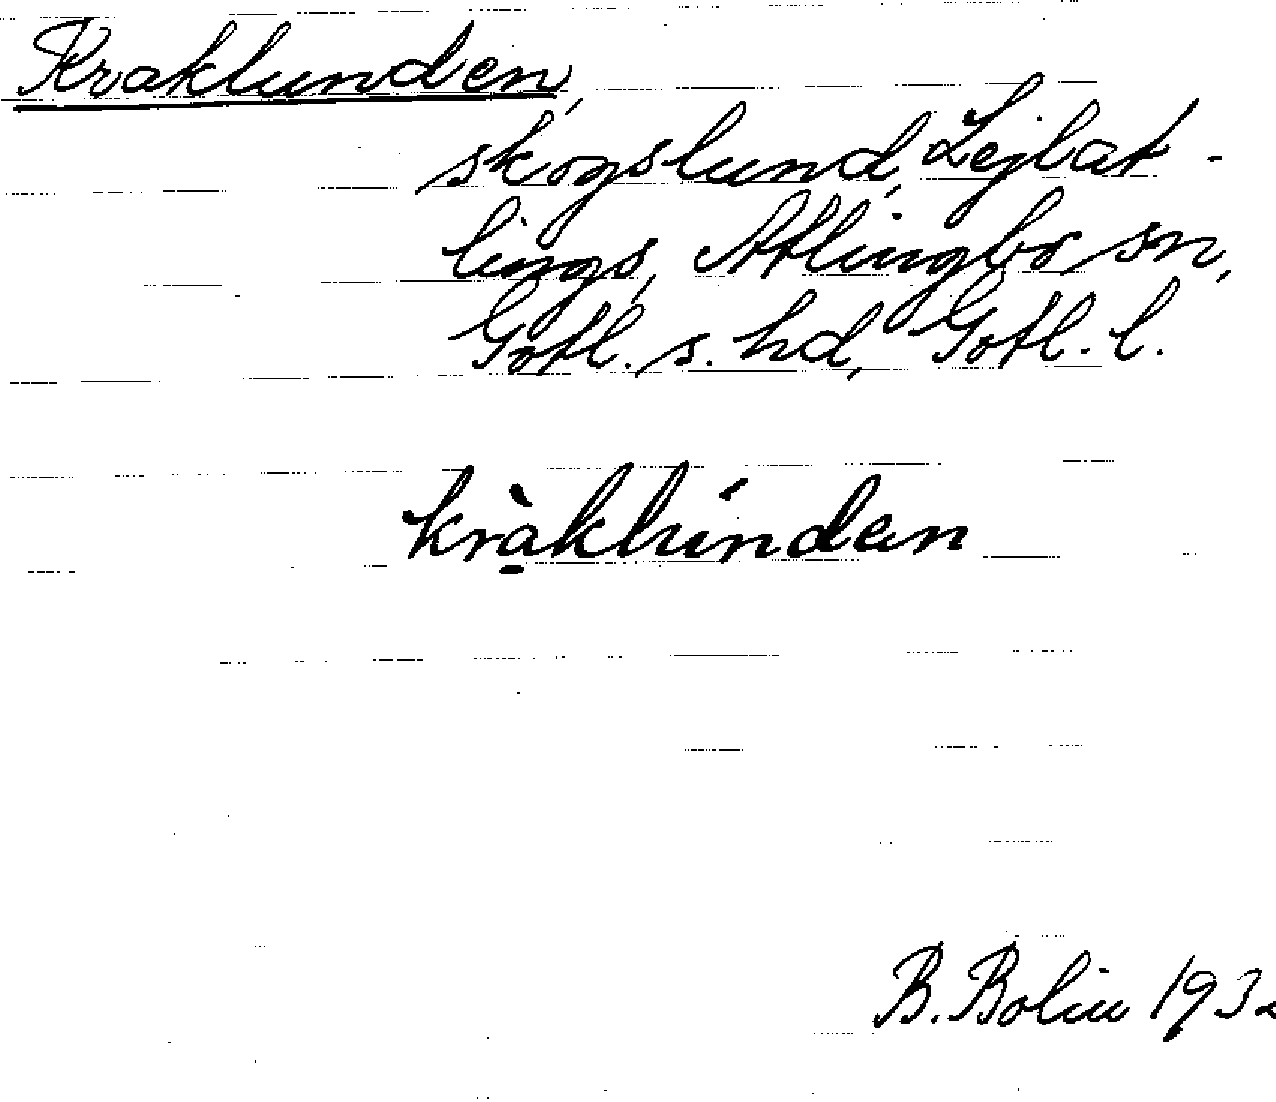 Kraklunden,
skogslund, Lejlat-
lings, Atlingbo sn,
Gotl. s. hd, Gotl. l.
krạ̀klúndan
B. Bolin 1932